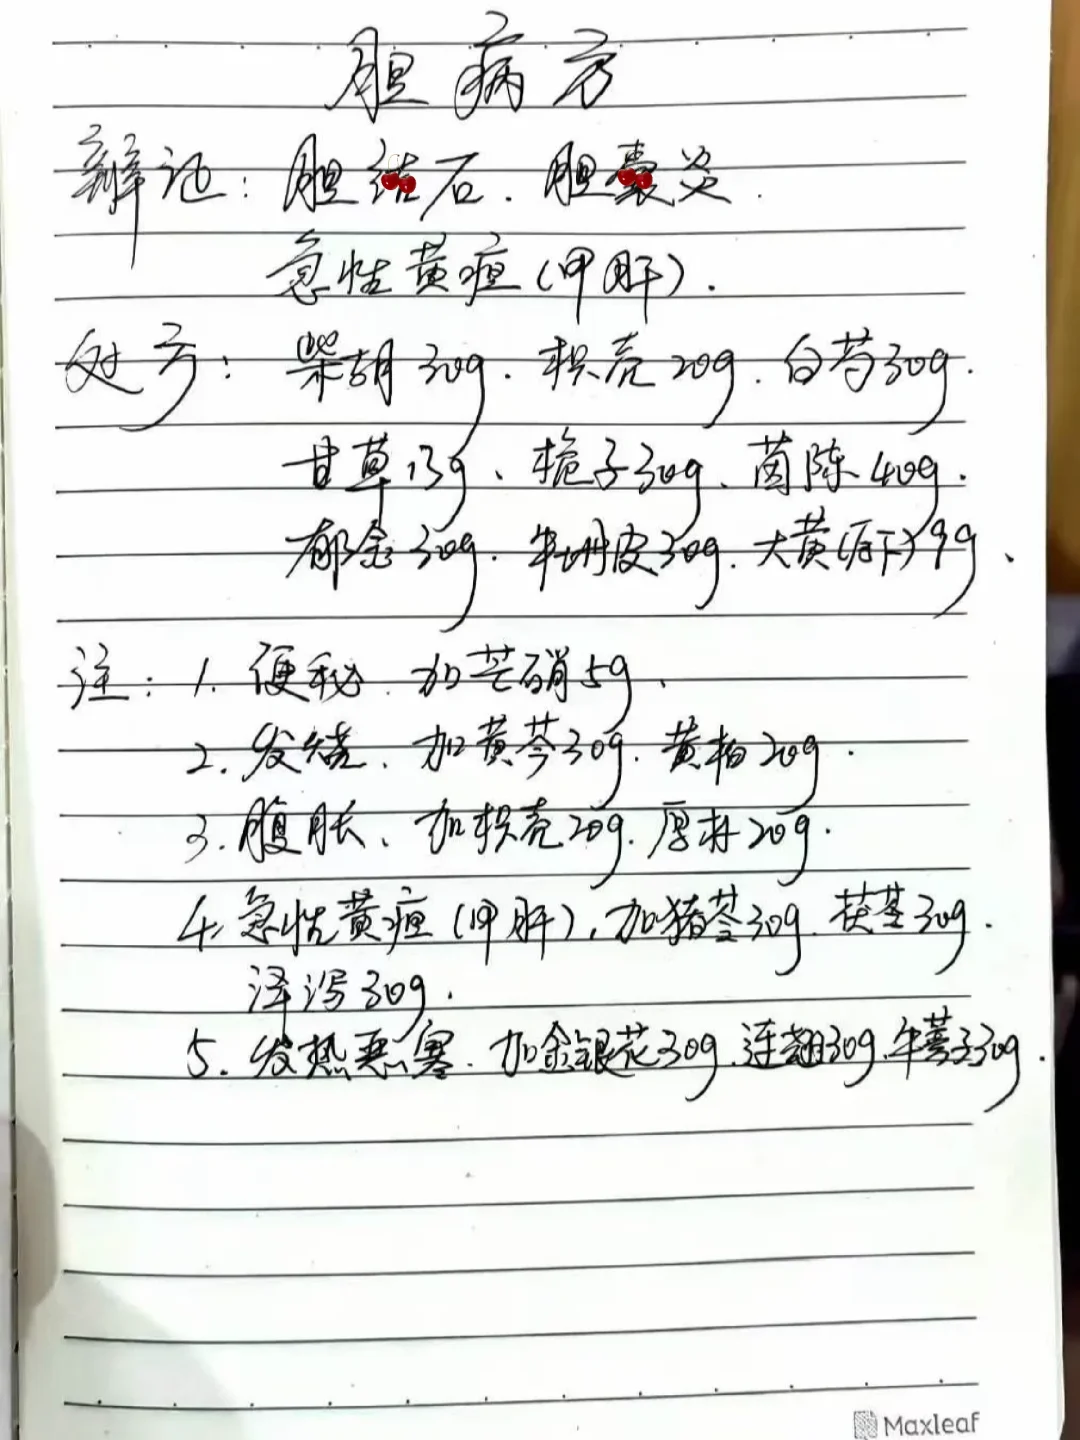 胆病方
辩证：胆结石．胆囊炎．
急性黄疸（甲肝）．
处方：柴胡30g．枳壳20g．白芍30g．
甘草13g、栀子30g、茵陈40g．
郁金30g．牡丹皮30g．大黄（后下）9g、
注：1．便秘．加芒硝5g、
2．发烧、加黄芩30g．黄柏20g．
3．腹胀、加枳壳20g．厚朴20g．
4．急性黄疸（甲肝）．加猪苓30g．茯苓30g．
泽泻30g．
5．发热恶寒．加金银花30g．连翘30g．牛蒡子30g．
Maxleaf